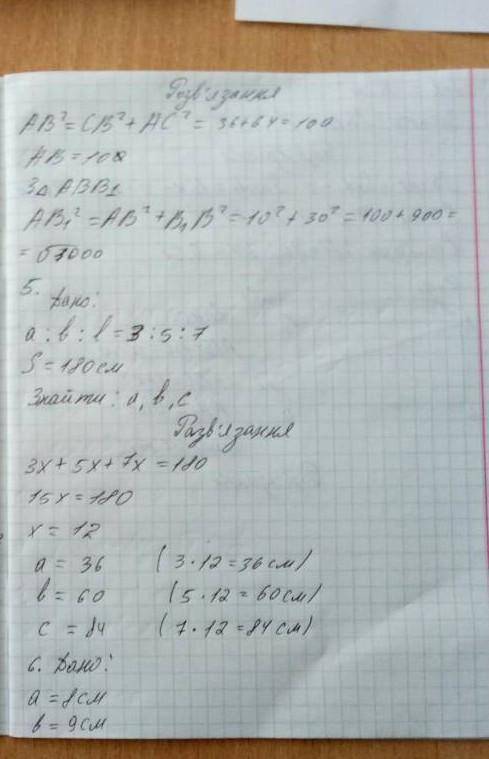 Розв'язання
AB² = CB² + AC² = 36+64 = 100
AB = 100
З△ ABB₁
AB₁² = AB² + B₁B² = 10² + 30² = 100 + 900 =
= √1000
5.
Дано:
a : b : c = 3 : 5 : 7
S = 180 см
Знайти: a, b, c
Розв'язання
3x + 5x + 7x = 180
15x = 180
x = 12
a = 36 (3·12 = 36 см)
b = 60 (5·12 = 60 см)
c = 84 (7·12 = 84 см)
6. Дано:
a = 8 см
b = 9 см